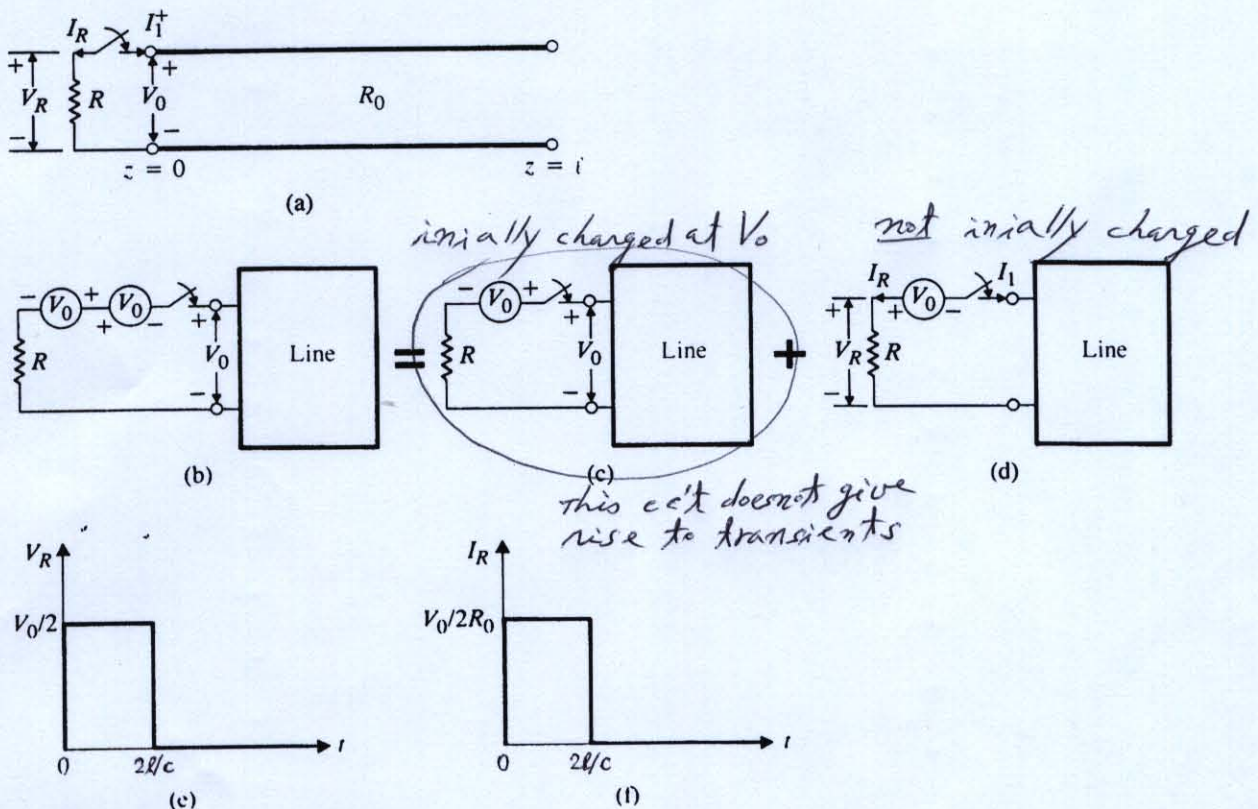 I_R I_1^+
+ + +
V_R R V_0 R_0
− −
z = 0 z = i
(a)
inially charged at V_0 not inially charged
− V_0 + + V_0 − +
R V_0 Line
−
(b)
=
− V_0 + +
R V_0 Line
−
(c)
+
I_R I_1
+ + V_0 −
V_R R Line
−
(d)
This cc't doesnot give
rise to transients
V_R
V_0/2
0 2ℓ/c t
(e)
I_R
V_0/2R_0
0 2ℓ/c t
(f)